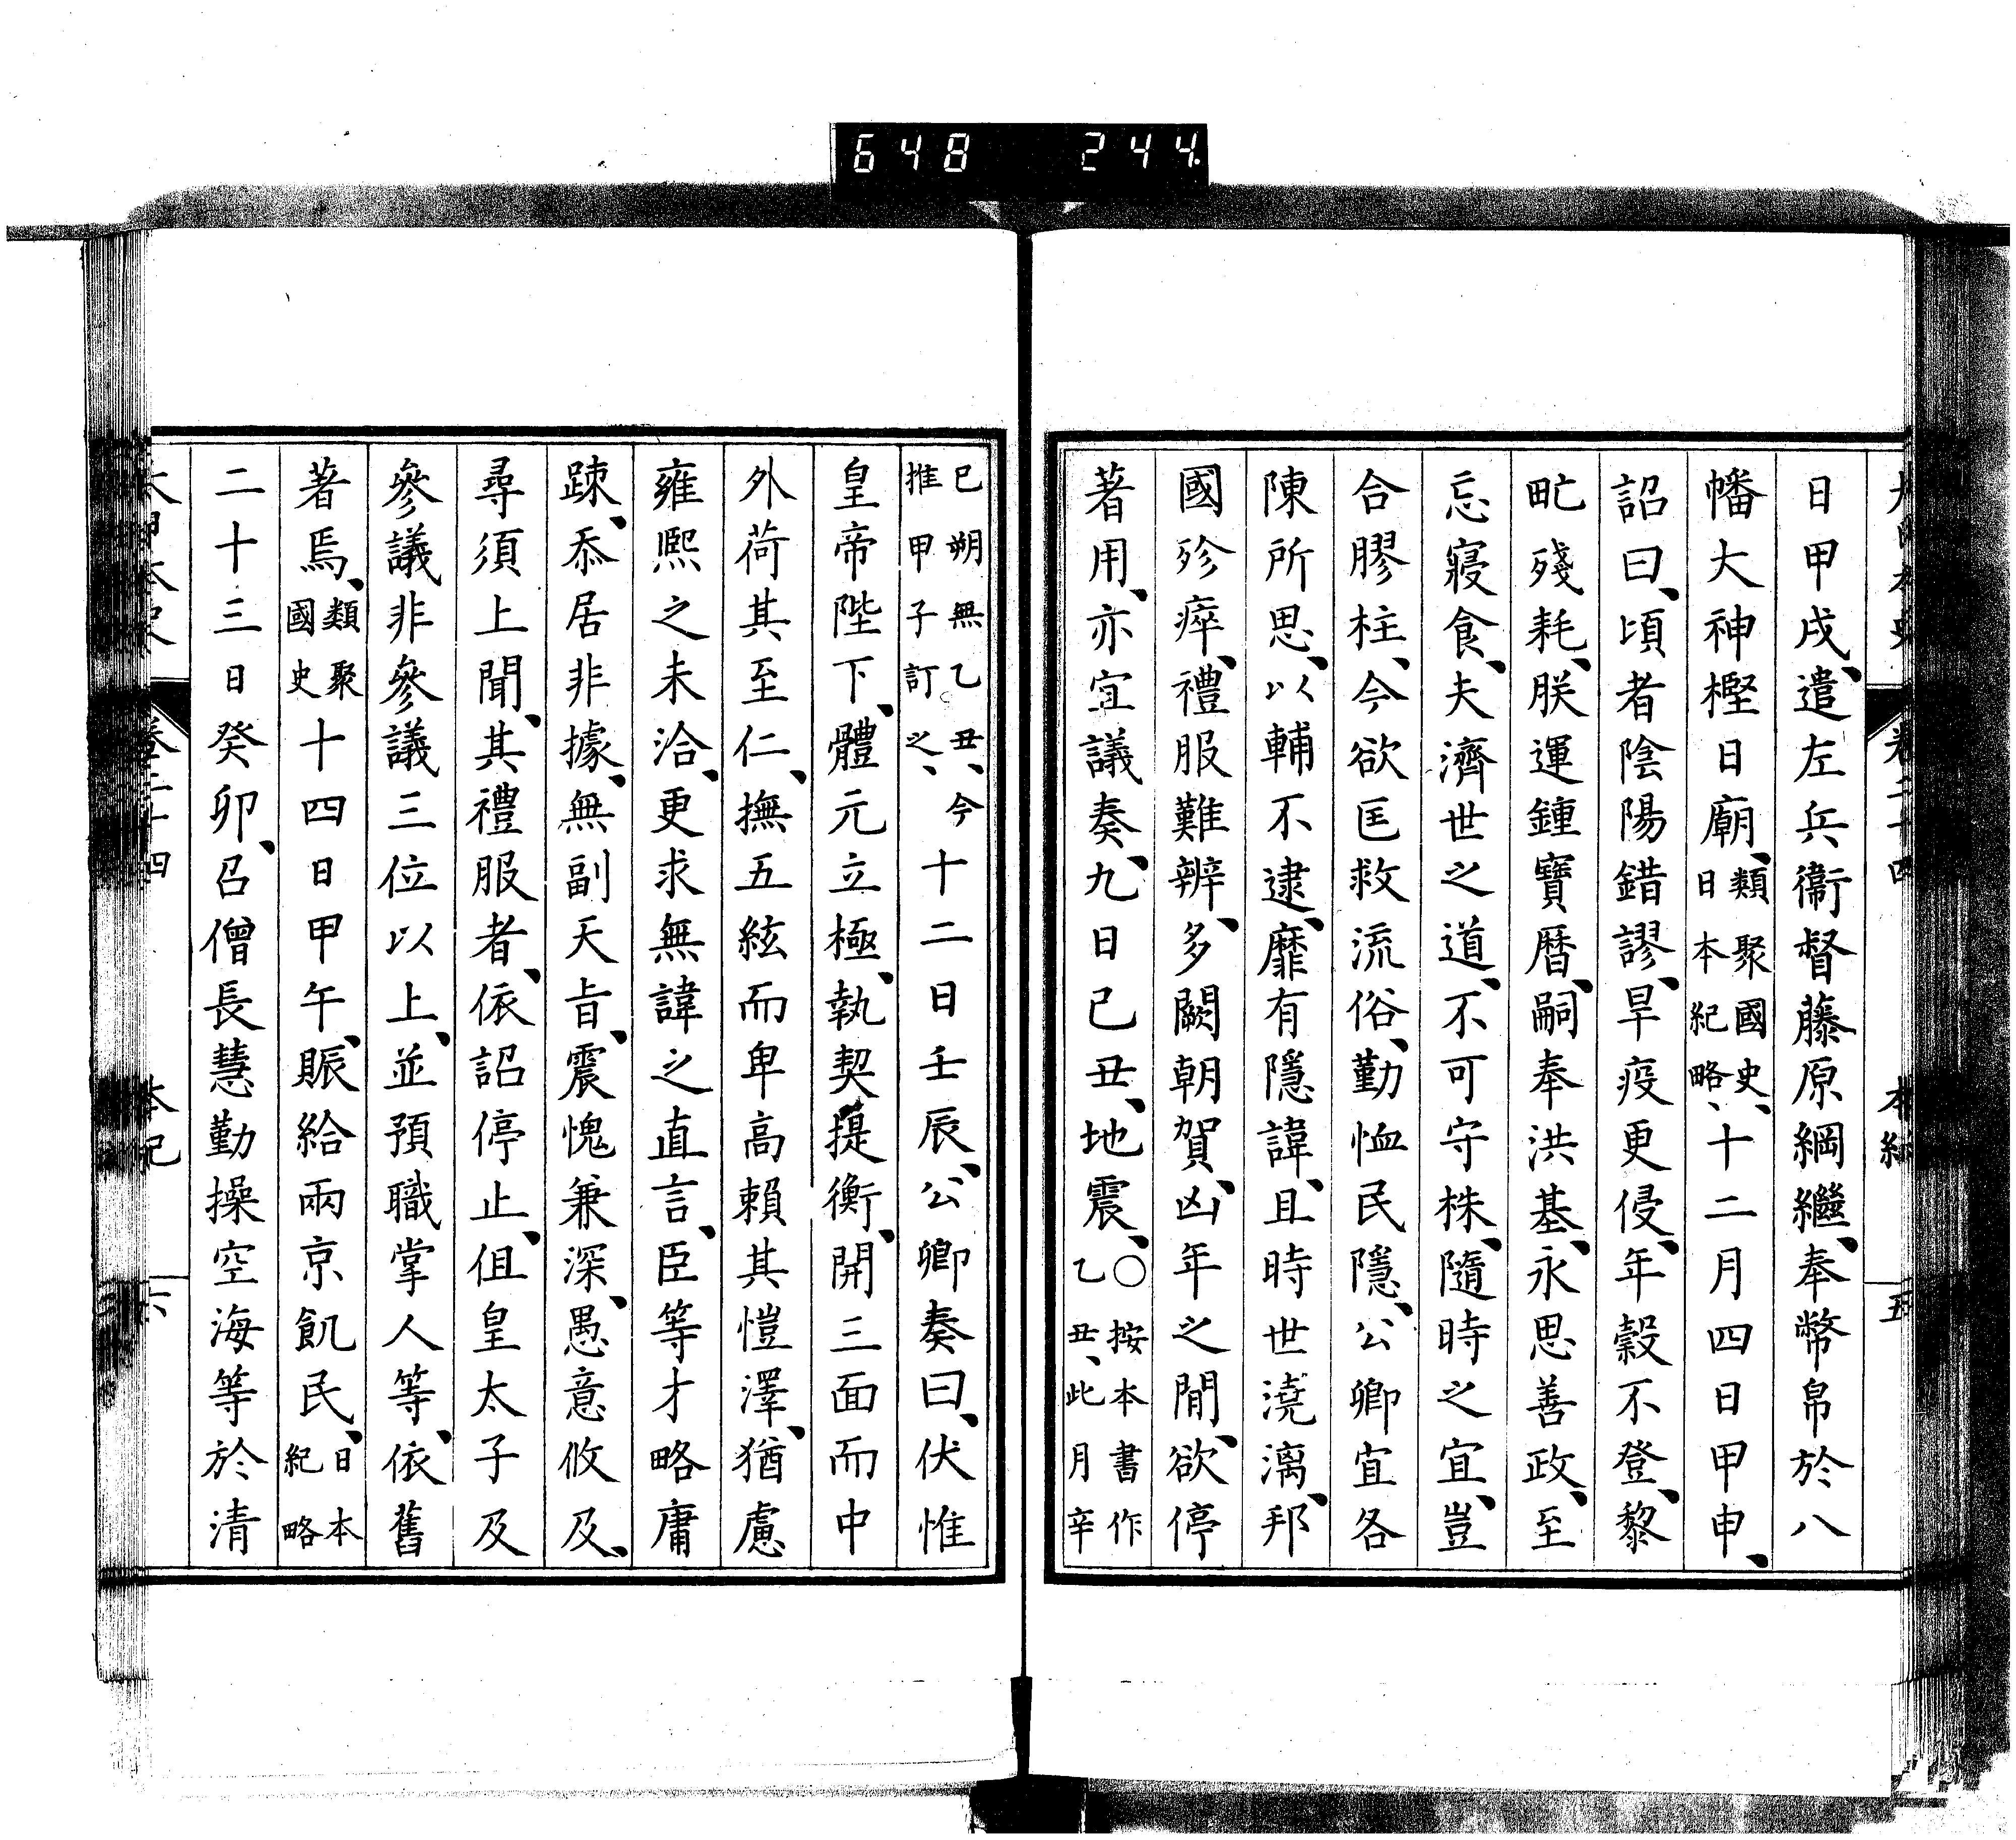 648 244
日甲戌、遣左兵衞督藤原綱繼、奉幣帛於八
幡大神樫日廟、類聚國史、日本紀略、十二月四日甲申、
詔曰、頃者陰陽錯謬、旱疫更侵、年穀不登、黎
甿殘耗、朕運鍾寶曆、嗣奉洪基、永思善政、至
忘寢食、夫濟世之道、不可守株、隨時之宜、豈
合膠柱、今欲匡救流俗、勤恤民隱、公卿宜各
陳所思、以輔不逮、靡有隱諱、且時世澆漓、邦
國殄瘁、禮服難辨、多闕朝賀、凶年之閒、欲停
著用、亦宜議奏、九日己丑、地震、〇按本書作乙丑、此月辛
巳朔無乙丑、今推甲子訂之、十二日壬辰、公卿奏曰、伏惟
皇帝陛下、體元立極、執契提衡、開三面而中
外荷其至仁、撫五絃而卑高賴其愷澤、猶慮
雍熙之未洽、更求無諱之直言、臣等才略庸
疎、忝居非據、無副天旨、震愧兼深、愚意攸及、
尋須上聞、其禮服者、依詔停止、但皇太子及
參議非參議三位以上、並預職掌人等、依舊
著焉、類聚國史十四日甲午、賑給兩京飢民、日本紀略
二十三日癸卯、召僧長慧勤操空海等於清
卷二十四
六